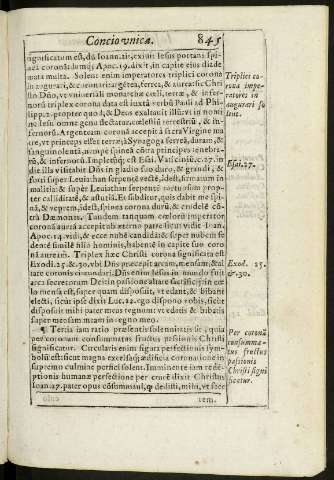 Concio vnica. 845
significatum est, dũ Ioann. 19. exiuit Iesus portans spi-
neã coronã: demũq; Apoc. 19. dixit, in capite eius diade
mata multa. Solent enim imperatores triplici corona
inaugurari, & coronari argẽtea, ferrea, & aurea: sic Chri-
sto Dño, vt vniuersali monarchæ cœli, terræ, & infer-
norũ triplex corona data est iuxtà verbũ Pauli ad Phi-
lipp. 2. propter quod, & Deus exaltauit illũ: vt in nomi
ne Iesu omne genu flectatur, cœlestiũ terrestriũ, & in-
fernorũ. Argenteam coronã accepit à sacra Virgine ma
tre, vt princeps esset terræ: à Synagoga ferreã, duram, &
sanguinolentã, nempe spineã cõtra principes tenebra-
rũ, & infernorũ. Impletũq; est Esai. Vaticiniũ. c. 27. in
die illa visitabit Dñs in gladio suo duro, & grandi, &
forti super Leuiathan serpentẽ vectẽ, idest, firmatum in
malitia: & super Leuiathan serpentẽ tortuosum prop-
ter calliditatẽ, & astutiã. Et subditur, quis dabit me spi-
nã, & veprem, idest, spinea corona durũ, & crudelẽ cõ-
trà Dæmones. Tandem tanquam cœlorũ imperator
coronã aureã accepit ab æterno patre sicut vidit Ioan.
Apoc. 14. vidi, & ecce nubẽ candidã & super nubem se
dentẽ similẽ filio hominis, habentẽ in capite suo coro
nã aureim. Triplex hæc Christi corona significata est
Exod. 25. & 30. vbi Dñs præcepit arcam, mensam, & al
tare coronis circundari. Dñs enim Iesus in mundo fuit
arca secretorum Dei: in passione altare sacrificij: in cœ
lo mensa est, super quam disposuit, vt edant, & bibant
electi, sicut ipse dixit Luc. 22. ego dispono vobis, sicut
disposuit mihi pater meus regnum: vt edatis & bibatis
super mensam meam in regno meo.
¶ Tertia iam ratio præsentis solennitatis sit, quia
per coronam consummatus fructus passionis Christi
significatur. Circularis enim figura perfectionis sym-
bolũ est: sicut magna excelsaq; ædificia coronatione in
supremo culmine perfici solent. Imminente iam redẽ-
ptionis humanæ perfectione per crucẽ dixit Christus
Ioan. 17. pater opus cõsummaui, q̃ dedisti, mihi, vt face
rem.
Triplici co-
rona impe-
ratores in
augurari so
lent.
Esai. 27.
Exod. 25.
& 30.
Per coronã
consumma-
tus fructus
passionis
Christi signi
ficatur.